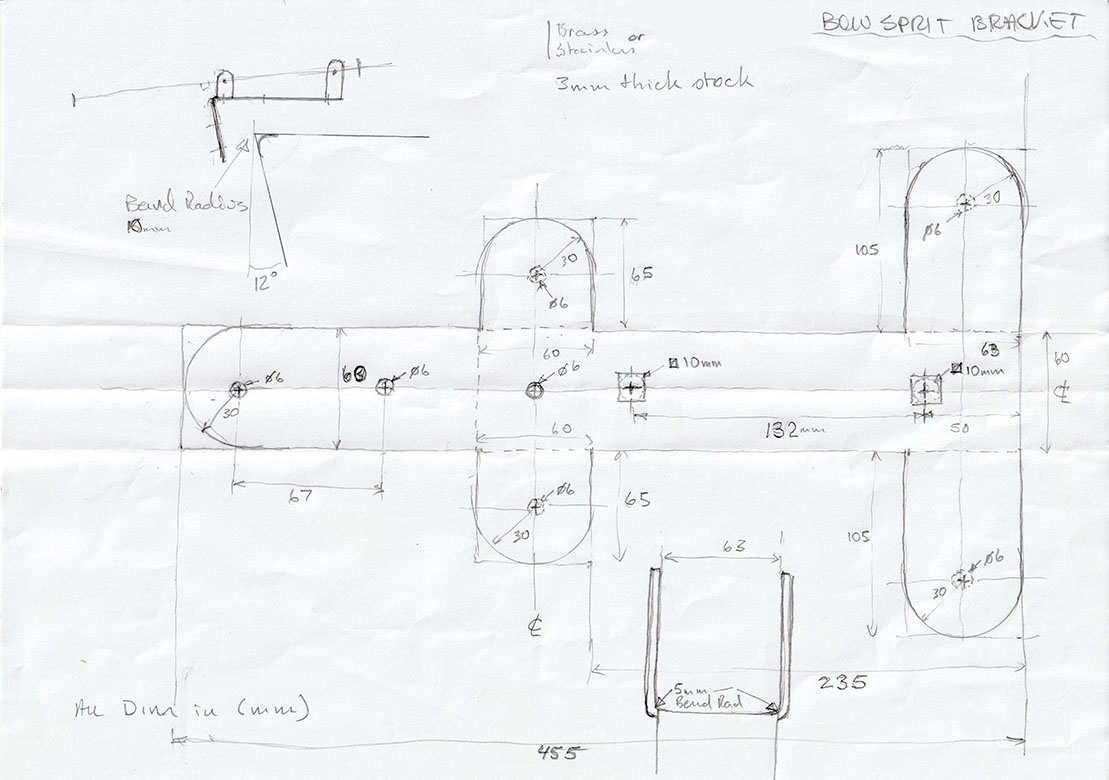 BOW SPRIT BRACKET
Brass or
Stainless
3mm thick stock
Bend Radius
10mm
12°
30
Ø6
105
30
Ø6
65
60
63
60
Ø6
Ø6
60
Ø6
10mm
10mm
30
℄
132mm
50
60
67
Ø6
30
65
105
Ø6
30
63
℄
5mm
Bend Rad
235
All Dim in (mm)
455